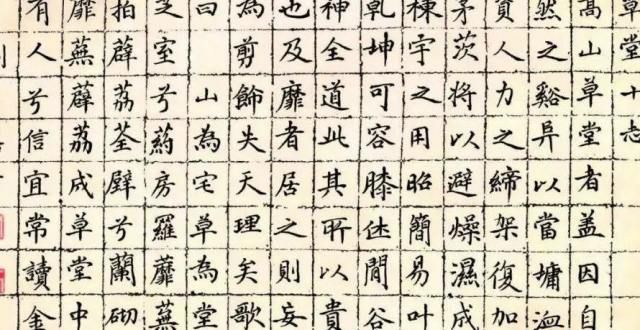 草堂十志
嵩山草堂者盖因自
然之谿異以當墉洫
資人力之締架復加
茅茨將以避燥濕成
棟宇之用昭簡易叶
乾坤可容膝休閒谷
神全道此其所以貴
也及靡者居之則妄
為剪飾失天理矣歌
曰 山為宅草為堂
芝室兮葯房羅蘼蕪
拍薜荔荃壁兮蘭砌
靡蕪薜荔成草堂中
有人兮信宜常讀金